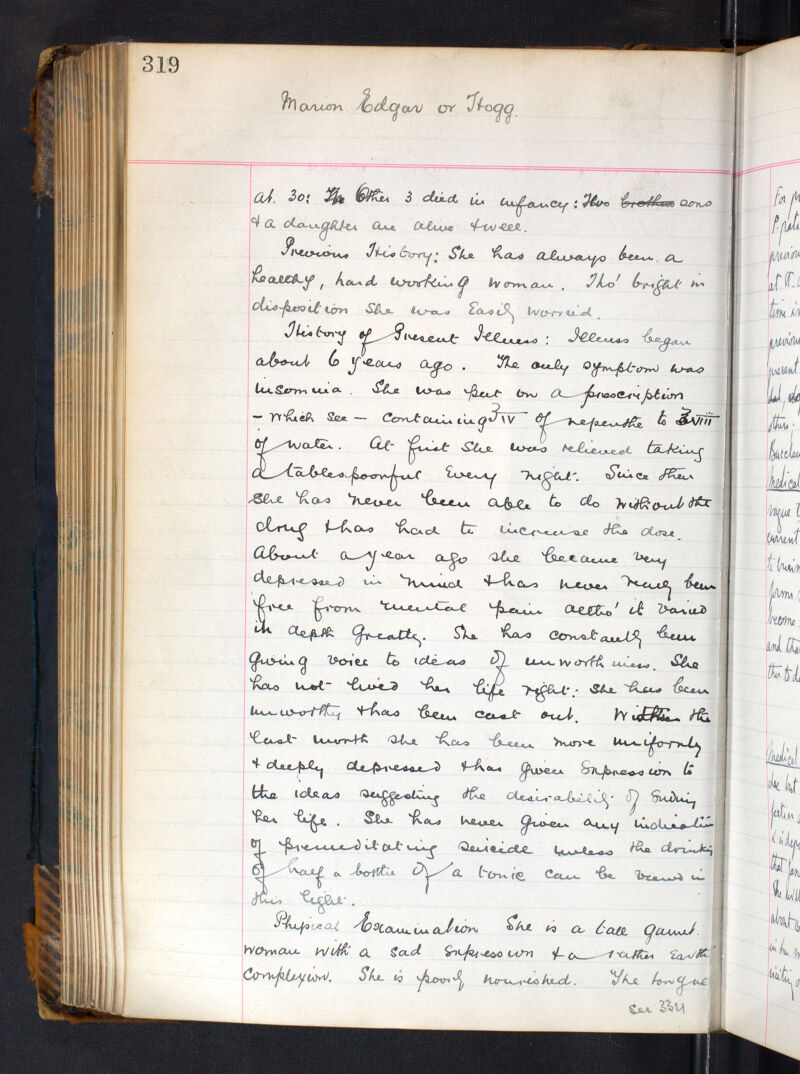 319
Marion Edgar or Hogg.
At. 30: The Other 3 died in infancy: Two brothers sons
& a daughter are alive & well.
Previous History: She has always been a
healthy, hard working woman. Tho' bright in
disposition she was Easily worried.
History of Present Illness: Illness began
about 6 years ago. The only symptom was
insomnia. She was put on a prescription
– which see – containing ʒIV of nepenthe to ℥VIII
of water. At first she was relieved taking
a tablespoonful Every night. Since then
she has never been able to do without the
drug & has had to increase the dose.
About a year ago she became very
depressed in mind & has never really been
free from mental pain altho' it varied
in depth Greatly. She has constantly been
Giving voice to ideas of unworthiness. She
has not lived her life right: she has been
unworthy & has been cast out. Within the
last month she has been more uniformly
& deeply depressed & has Given Expression to
the ideas suggesting the desirability of Ending
her life. She has never Given any indication
of premeditating suicide unless the drinking
of half a bottle of a tonic can be viewed in
this light.
Physical Examination She is a tall gaunt
woman with a sad Expression & a rather Earthy
complexion. She is poorly nourished. The tongue
See 334
For
P.
previous
at
time in
previous
present
Medical
vague
current
forms
become
and
Medical
that
about